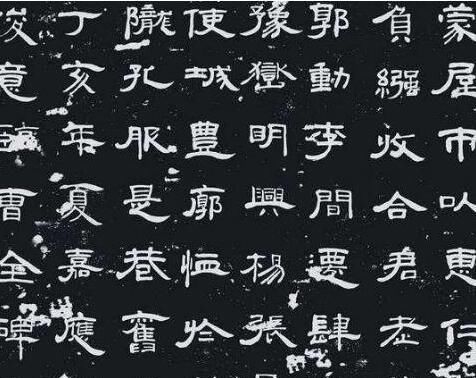 蒙屋市以惠
負繈收合君老
郭動李間遷肆
豫嶽明興楊張
使城豊廓恤於
隴孔服是巷舊
丁亥年夏嘉應
意曹全碑